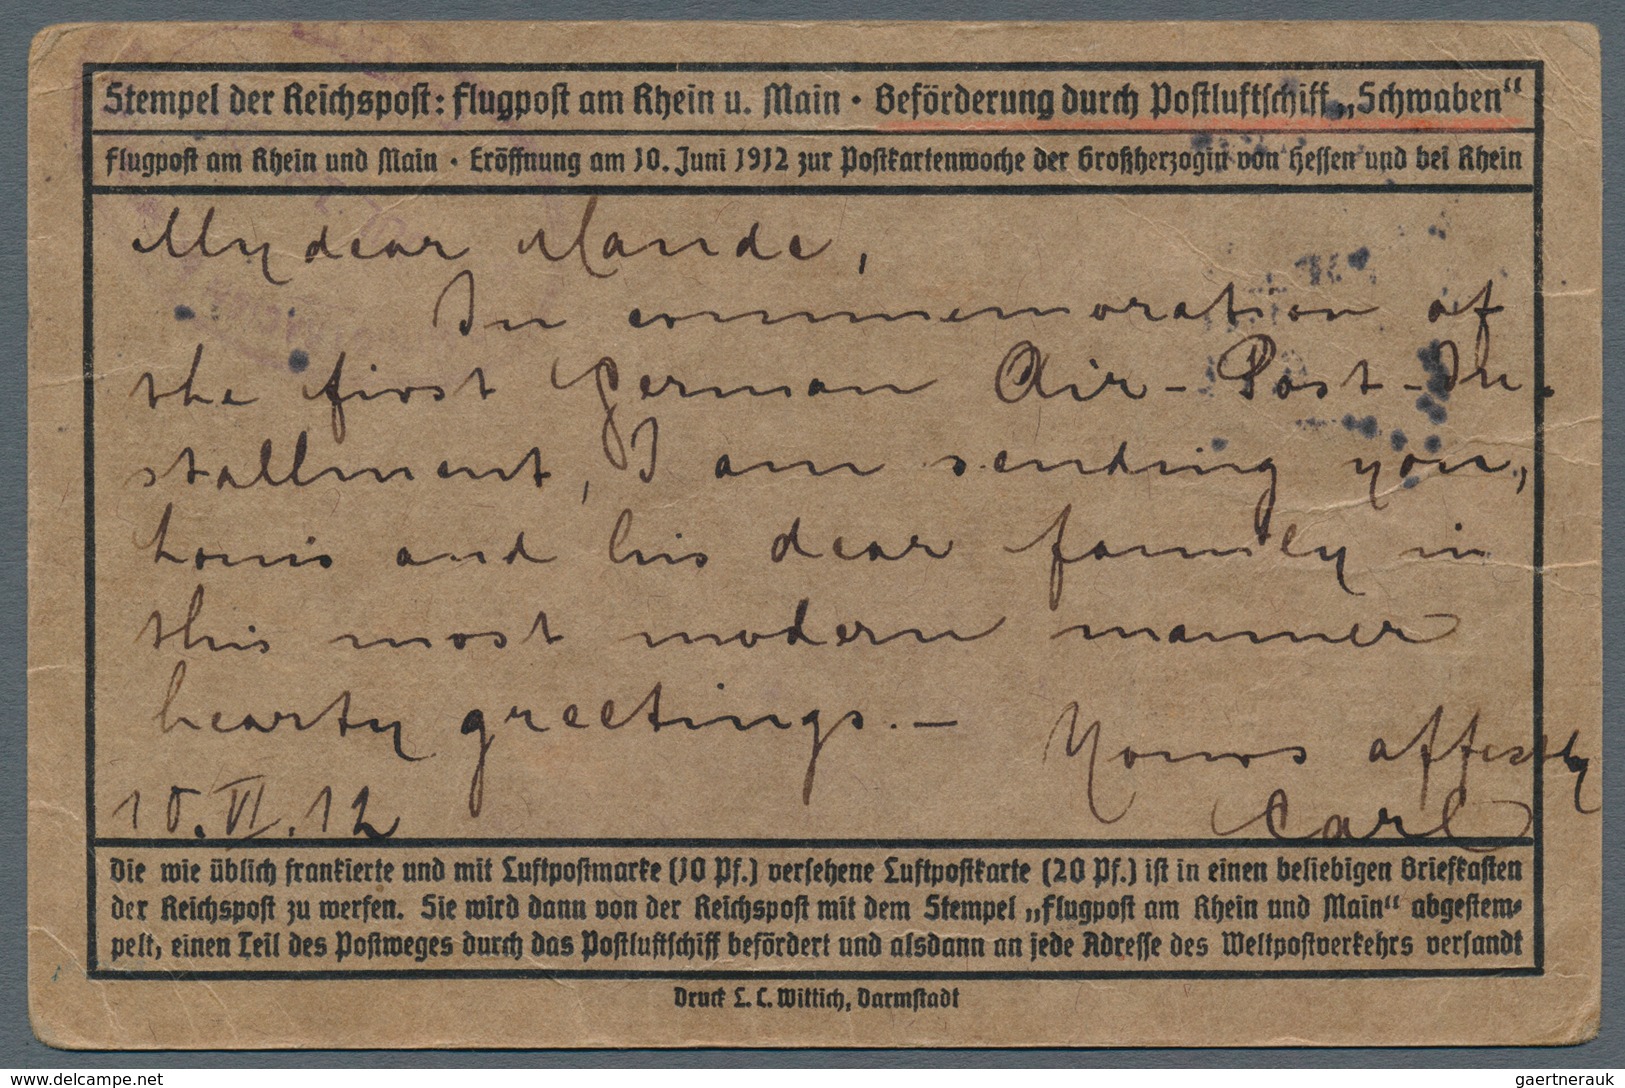 Stempel der Reichspost: Flugpost am Rhein u. Main · Beförderung durch Postluftschiff „Schwaben“
Flugpost am Rhein und Main · Eröffnung am 10. Juni 1912 zur Postkartenwoche der Großherzogin von Hessen und bei Rhein
My dear Maude,
In commemoration of
the first German Air-Post-In-
stallment, I am sending you,
Louis and his dear family in
this most modern manner
hearty greetings. —
Yours affectly
10. VI. 12
Carl
Die wie üblich frankierte und mit Luftpostmarke (10 Pf.) versehene Luftpostkarte (20 Pf.) ist in einen beliebigen Briefkasten
der Reichspost zu werfen. Sie wird dann von der Reichspost mit dem Stempel „Flugpost am Rhein und Main“ abgestem-
pelt, einen Teil des Postweges durch das Postluftschiff befördert und alsdann an jede Adresse des Weltpostverkehrs versandt
Druck L. C. Wittich, Darmstadt
delcampe.net
gaertnerauk